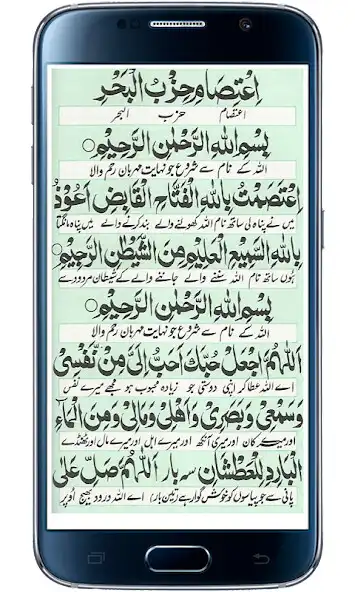 اِعْتِصَامِ حِزْبُ الْبَحْرِ
اعتصام حزب البحر
بِسْمِ اللهِ الرَّحْمٰنِ الرَّحِيْمِ
اللہ کے نام سے شروع جو نہایت مہربان رحم والا
اِعْتَصَمْتُ بِاللهِ الْفَتَّاحِ الْقَابِضِ اَعُوْذُ
میں نے پناہ لی ساتھ نام اللہ کھولنے والے بند کرنے والے میں پناہ مانگتا
بِاللهِ السَّمِيْعِ الْعَلِيْمِ مِنَ الشَّيْطٰنِ الرَّجِيْمِ
ہوں ساتھ نام اللہ سننے والے جاننے والے کے شیطان مردود سے
بِسْمِ اللهِ الرَّحْمٰنِ الرَّحِيْمِ
اللہ کے نام سے شروع جو نہایت مہربان رحم والا
اَللّٰهُمَّ اجْعَلْ حُبَّكَ اَحَبَّ اِلَىَّ مِنْ نَّفْسِىْ
اے اللہ عطا کر اپنی دوستی جو زیادہ محبوب ہو مجھے میرے نفس
وَسَمْعِىْ وَبَصَرِىْ وَاَهْلِىْ وَمَالِىْ وَمِنَ الْمَآءِ
اور میرے کان اور میری آنکھ اور میرے اہل اور میرے مال اور ٹھنڈے
الْبَارِدِ لِلْعَطْشَانِ سہ بار اَللّٰهُمَّ صَلِّ عَلٰى
پانی سے جو پیاسوں کو خوش گوار ہے (تین بار) اے اللہ درود بھیج اوپر